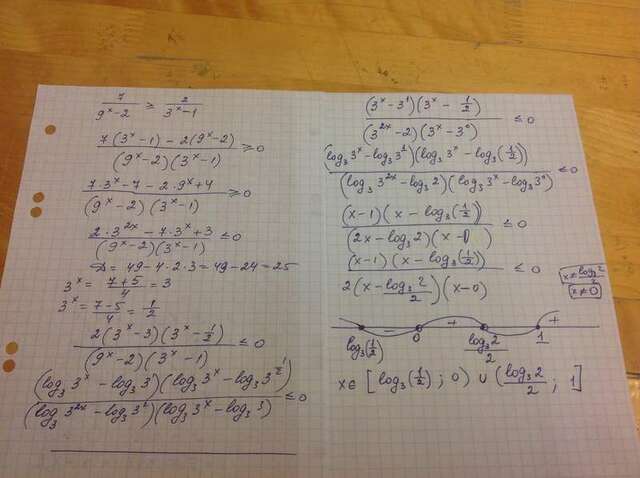 7/(9^x-2) ≥ 2/(3^x-1)
(7(3^x-1)-2(9^x-2))/((9^x-2)(3^x-1)) ≥0
(7·3^x-7-2·9^x+4)/((9^x-2)(3^x-1)) ≥0
(2·3^{2x}-7·3^x+3)/((9^x-2)(3^x-1)) ≤0
D=49-4·2·3=49-24=25
3^x=(7+5)/4=3
3^x=(7-5)/4=1/2
(2(3^x-3)(3^x-1/2))/((9^x-2)(3^x-1)) ≤0
((log_3 3^x-log_3 3^1)(log_3 3^x-log_3 3^{1/2}))/((log_3 3^{2x}-log_3 3^2)(log_3 3^x-log_3 3)) ≤0
((3^x-3^1)(3^x-1/2))/((3^{2x}-2)(3^x-3^0)) ≤0
((log_3 3^x-log_3 3^1)(log_3 3^x-log_3(1/2)))/((log_3 3^{2x}-log_3 2)(log_3 3^x-log_3 3^0)) ≤0
((x-1)(x-log_3(1/2)))/((2x-log_3 2)(x-0)) ≤0
((x-1)(x-log_3(1/2)))/(2(x-log_3 2/2)(x-0)) ≤0
x≠log_3 2/2
x≠0
- + - +
log_3(1/2) 0 log_3 2/2 1
x∈[log_3(1/2); 0) ∪ (log_3 2/2; 1]